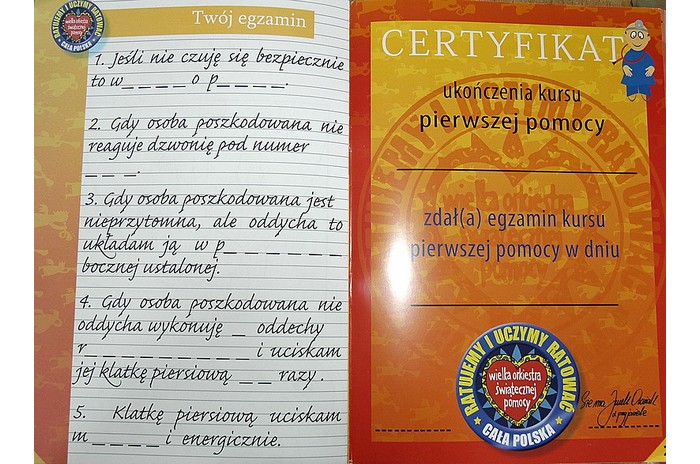 RATUJEMY I UCZYMY RATOWAĆ
wielka orkiestra
świątecznej
pomocy
CAŁA POLSKA
Twój egzamin
1. Jeśli nie czuję się bezpiecznie
to w_ _ _ _ _ o p_ _ _ _ _.
2. Gdy osoba poszkodowana nie
reaguje dzwonię pod numer
_ _ _.
3. Gdy osoba poszkodowana jest
nieprzytomna, ale oddycha to
układam ją w p_ _ _ _ _ _ _
bocznej ustalonej.
4. Gdy osoba poszkodowana nie
oddycha wykonuję _ oddechy
r_ _ _ _ _ _ _ _ _ i uciskam
jej klatkę piersiową _ _ razy.
5. Klatkę piersiową uciskam
m_ _ _ _ _ i energicznie.
CERTYFIKAT
ukończenia kursu
pierwszej pomocy
zdał(a) egzamin kursu
pierwszej pomocy w dniu
RATUJEMY I UCZYMY RATOWAĆ
wielka orkiestra
świątecznej
pomocy
CAŁA POLSKA
Sie ma